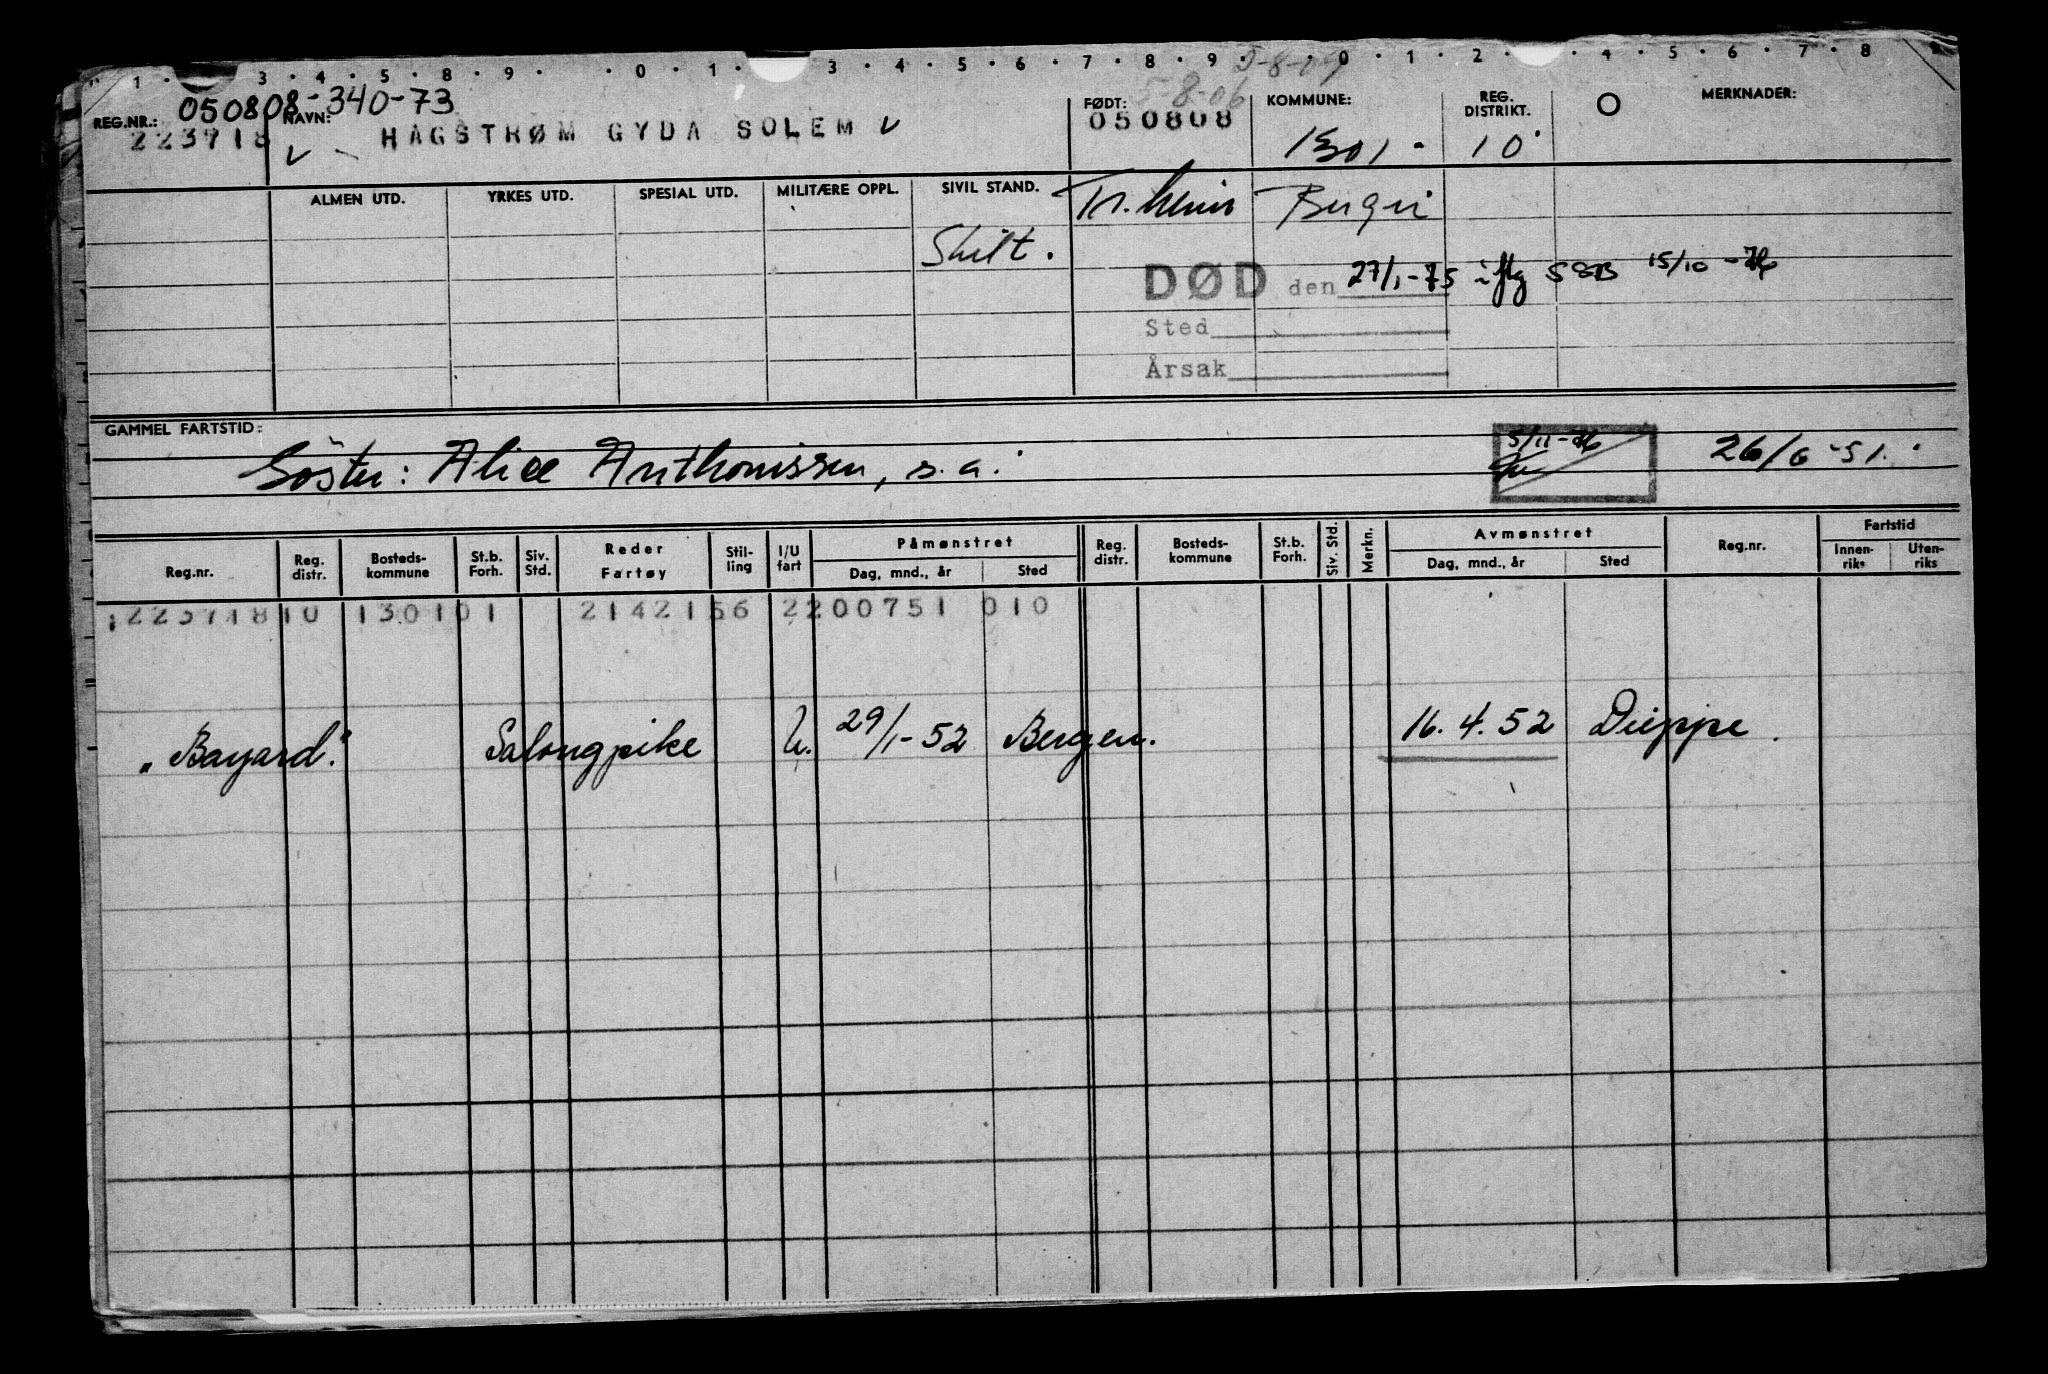 1 · 3 · 4 · 5 · 8 · 9 · · 0 · 1 · 3 · 4 · 5 · 6 · 7 · 8 · 9 · 0 · 1 · 2 · · 4 · 5 · 6 · 7 · 8
5-8-09
REG.NR.: 050808-340-73 NAVN: FØDT: 5-8-06 KOMMUNE: REG. DISTRIKT. O MERKNADER:
223718 HAGSTRØM GYDA SOLEM 050808 1301 10
ALMEN UTD. YRKES UTD. SPESIAL UTD. MILITÆRE OPPL. SIVIL STAND. Tr.heim Bergen
Skilt.
DØD den 27/1-75 iflg SSB 15/10-76
Sted
Årsak
GAMMEL FARTSTID:
Söster: Alice Anthonissen, s.a. 5/11-76 26/6-51.
Reg.nr. Reg. distr. Bosteds- kommune St.b. Forh. Siv. Std. Reder Fartøy Stil- ling I/U fart Påmønstret Dag, mnd., år Sted Reg. distr. Bosteds- kommune St.b. Forh. Siv. Std. Merkn. Avmønstret Dag, mnd., år Sted Reg.nr. Fartstid Innen- riks Uten- riks
22371810 130101 2142156 2200751 010
"Bayard." Salongpike U. 29/1-52 Bergen. 16.4.52 Dieppe.